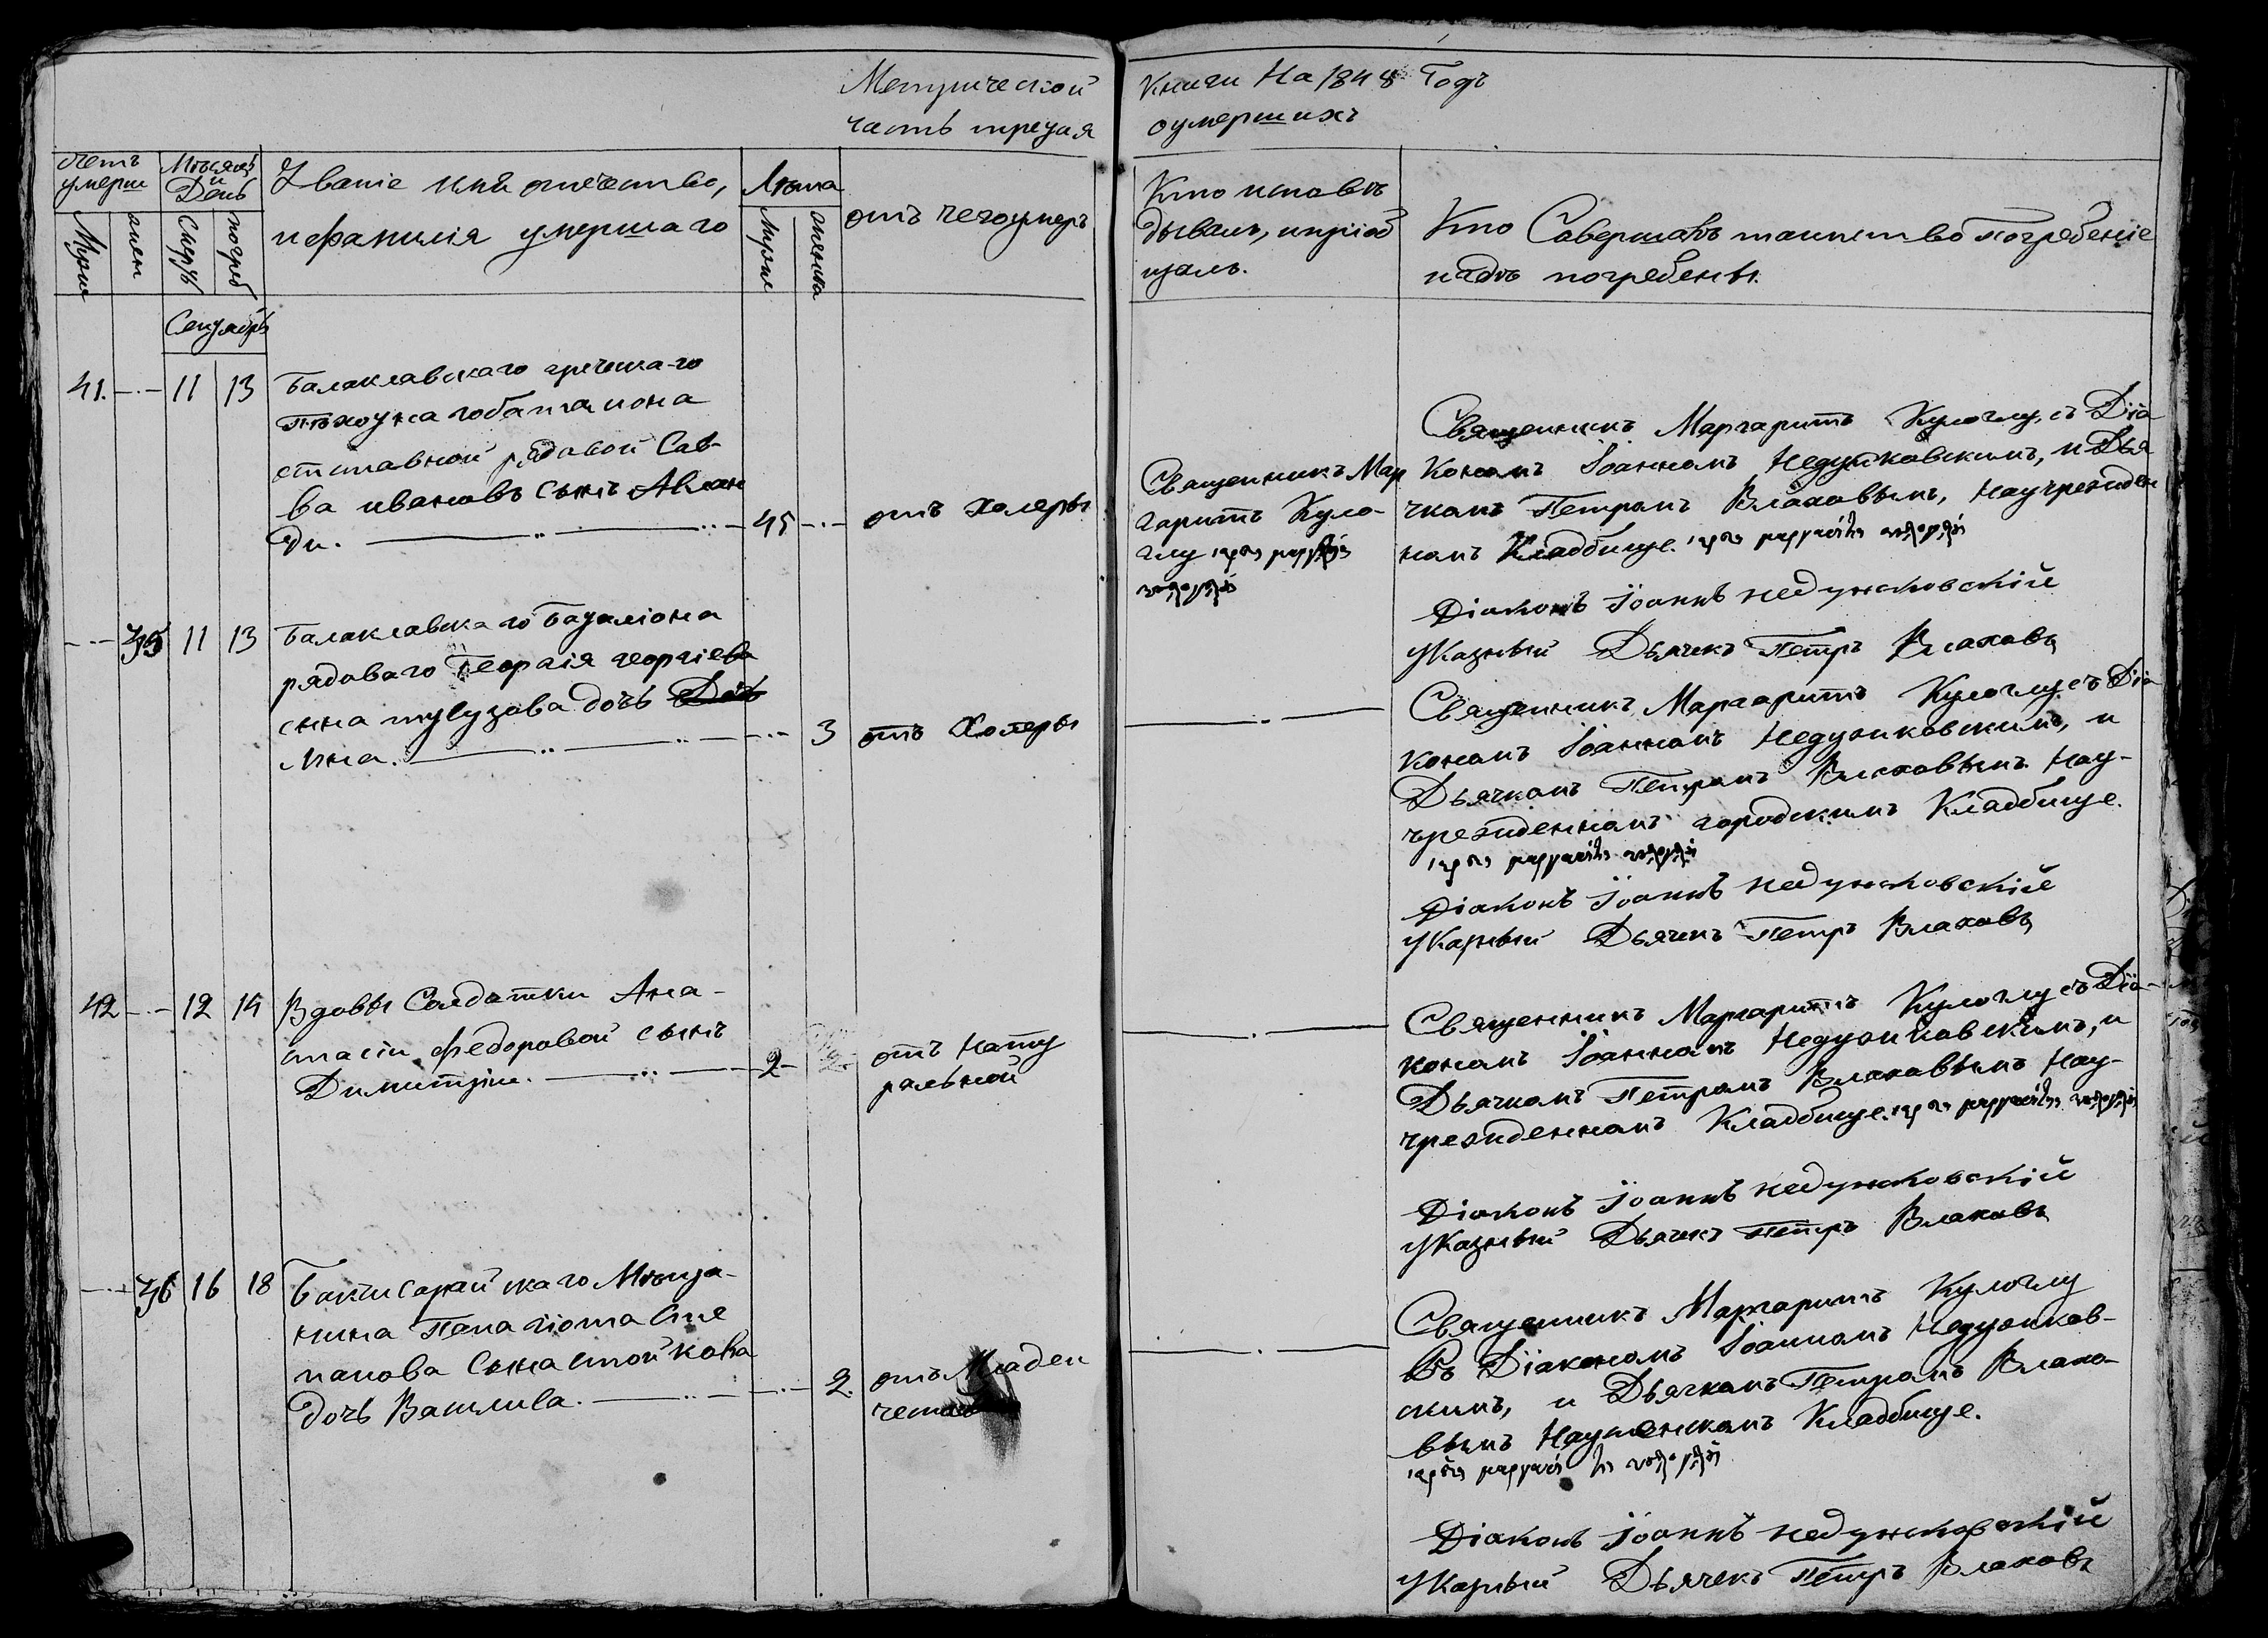 Метрической
часть третая
Книги На 1848 Годъ
о умершихъ
счетъ
умерш
Мѣсяцъ
и
День
Званіе имя отечество,
и фамилія умершаго
Лѣта
отъ чего умеръ
Муж
женс
Смерть
погреб
Мужес
женска
Кто исповѣ
дывалъ, и пріоб
щалъ.
Кто Совершавъ таинство погребеніе
и гдѣ погребены.
Сентябрь
41. 11 13
Балаклавскаго греческаго
пѣхотнаго баталиона
отставной рядовой Сав-
ва ивановъ сынъ
45 отъ Холеры
Священникъ Мар
гаритъ Куло-
глу
Священникъ Маргаритъ Кулоглу, съ Діа
кономъ Іоанномъ Недужковскимъ, и Дья
чкомъ Петромъ Влаховымъ, На учрежден
номъ Кладбище.
Діаконъ Іоаннъ недужковскій
Указный Дьячекъ Петръ Влаховъ
35 11 13
Балаклавскаго Баталіона
рядоваго Георгія георгіева
сына дочь
Анна.
3 отъ Холеры
Священникъ Маргаритъ Кулоглу съ Діа
кономъ Іоанномъ Недужковскимъ, и
Дьячкомъ Петромъ Влаховымъ На у-
чрежденномъ городскимъ Кладбище.
Діаконъ Іоаннъ недужковскій
Указный Дьячекъ Петръ Влаховъ
42 12 14
Вдовы Солдатки Ана-
стасіи Федоровой сынъ
Димитрій.
2 отъ Нату
ральной
Священникъ Маргаритъ Кулоглу съ Діа-
кономъ Іоанномъ Недужковскимъ, и
Дьячкомъ Петромъ Влаховымъ На у-
чрежденномъ Кладбище.
Діаконъ Іоаннъ недужковскій
Указный Дьячекъ Петръ Влаховъ
36 16 18
Бакчисарайскаго Мѣща-
нина Панагіота Сте
панова Сына стойкова
дочь Василива.
2. отъ Младен
чест
Священникъ Маргаритъ Кулоглу
Съ Діакономъ Іоанномъ Недужков-
скимъ, и Дьячкомъ Петромъ Влахо-
вымъ Кладбище.
Діаконъ Іоаннъ недужковскій
Указный Дьячекъ Петръ Влаховъ